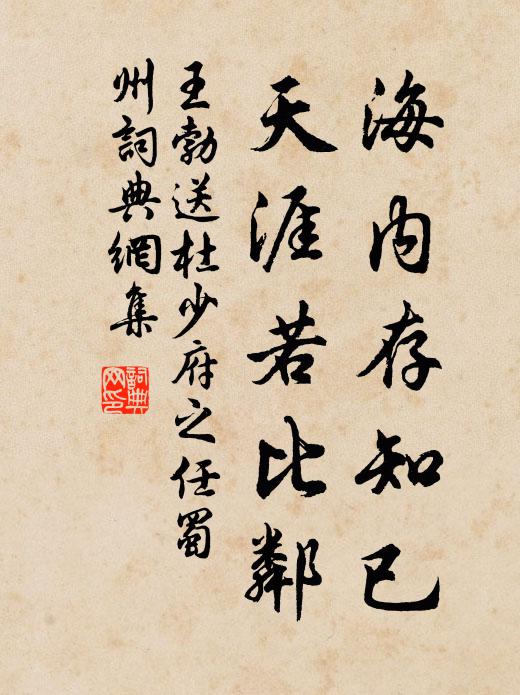 海内存知已
天涯若比鄰
王勃送杜少府之任蜀
州詞典網集
詞典
网印